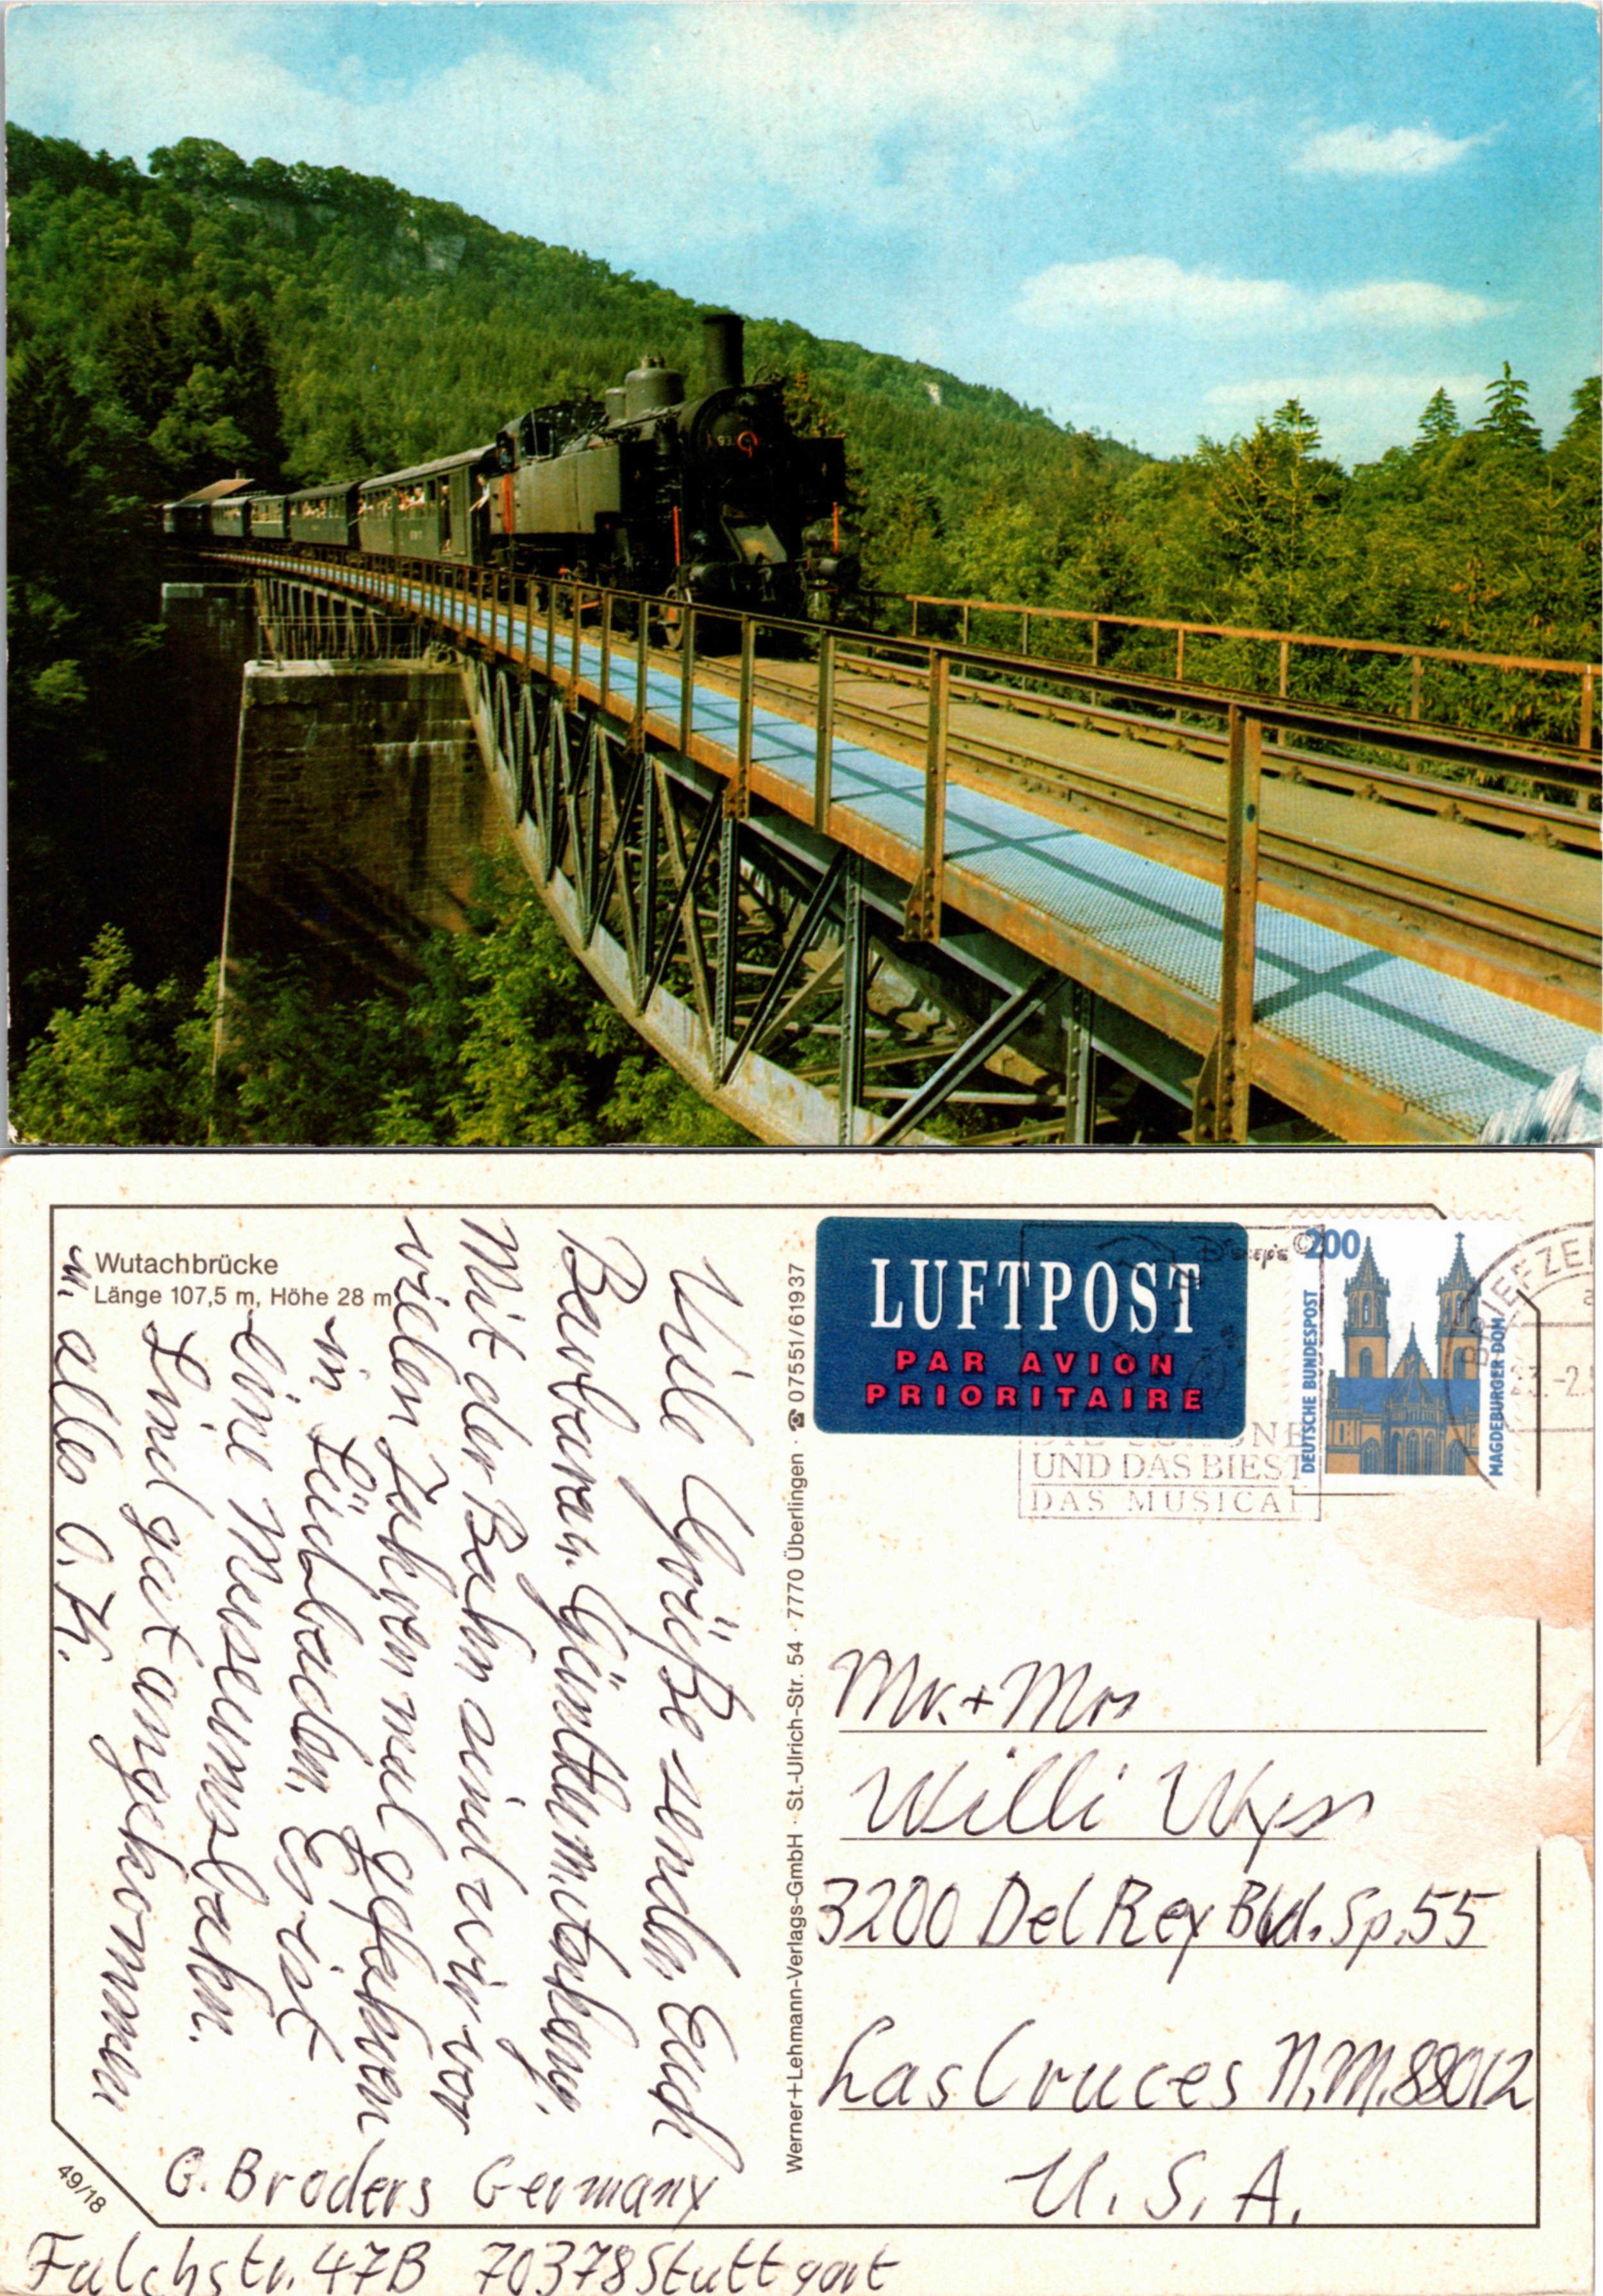 93
Wutachbrücke
Länge 107,5 m, Höhe 28 m
Viele Grüße senden Euch
Barbara u. Günther
Mit der Bahn sind wir vor
vielen Jahren mal gefahren
in Südbaden. Es ist
eine Museumsbahn.
Sind gut angekommen
u. alles O.K.
G. Broders Germany
Falchstr. 47B 70378 Stuttgart
49/18
Werner+Lehmann-Verlags-GmbH · St.-Ulrich-Str. 54 · 7770 Überlingen · ☎ 07551/61937
LUFTPOST
PAR AVION
PRIORITAIRE
Disney's ©
DIE SCHÖNE
UND DAS BIEST
DAS MUSICAL
200
DEUTSCHE BUNDESPOST
MAGDEBURGER DOM
BRIEFZE
23.-2.
Mr. + Mrs
Willi Wyss
3200 Del Rey Blvd. Sp. 55
Las Cruces N.M. 88012
U.S.A.